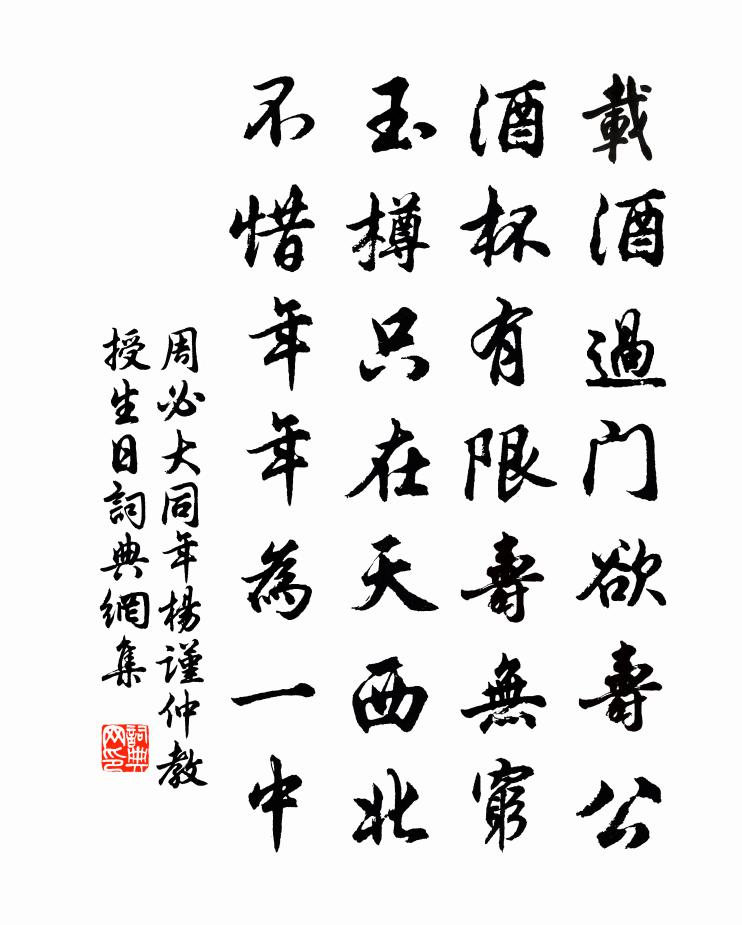 載酒過门欲壽公
酒杯有限壽無窮
玉樽只在天西北
不惜年年為一中
周必大同年楊謹仲教
授生日詞典網集
詞典
网印